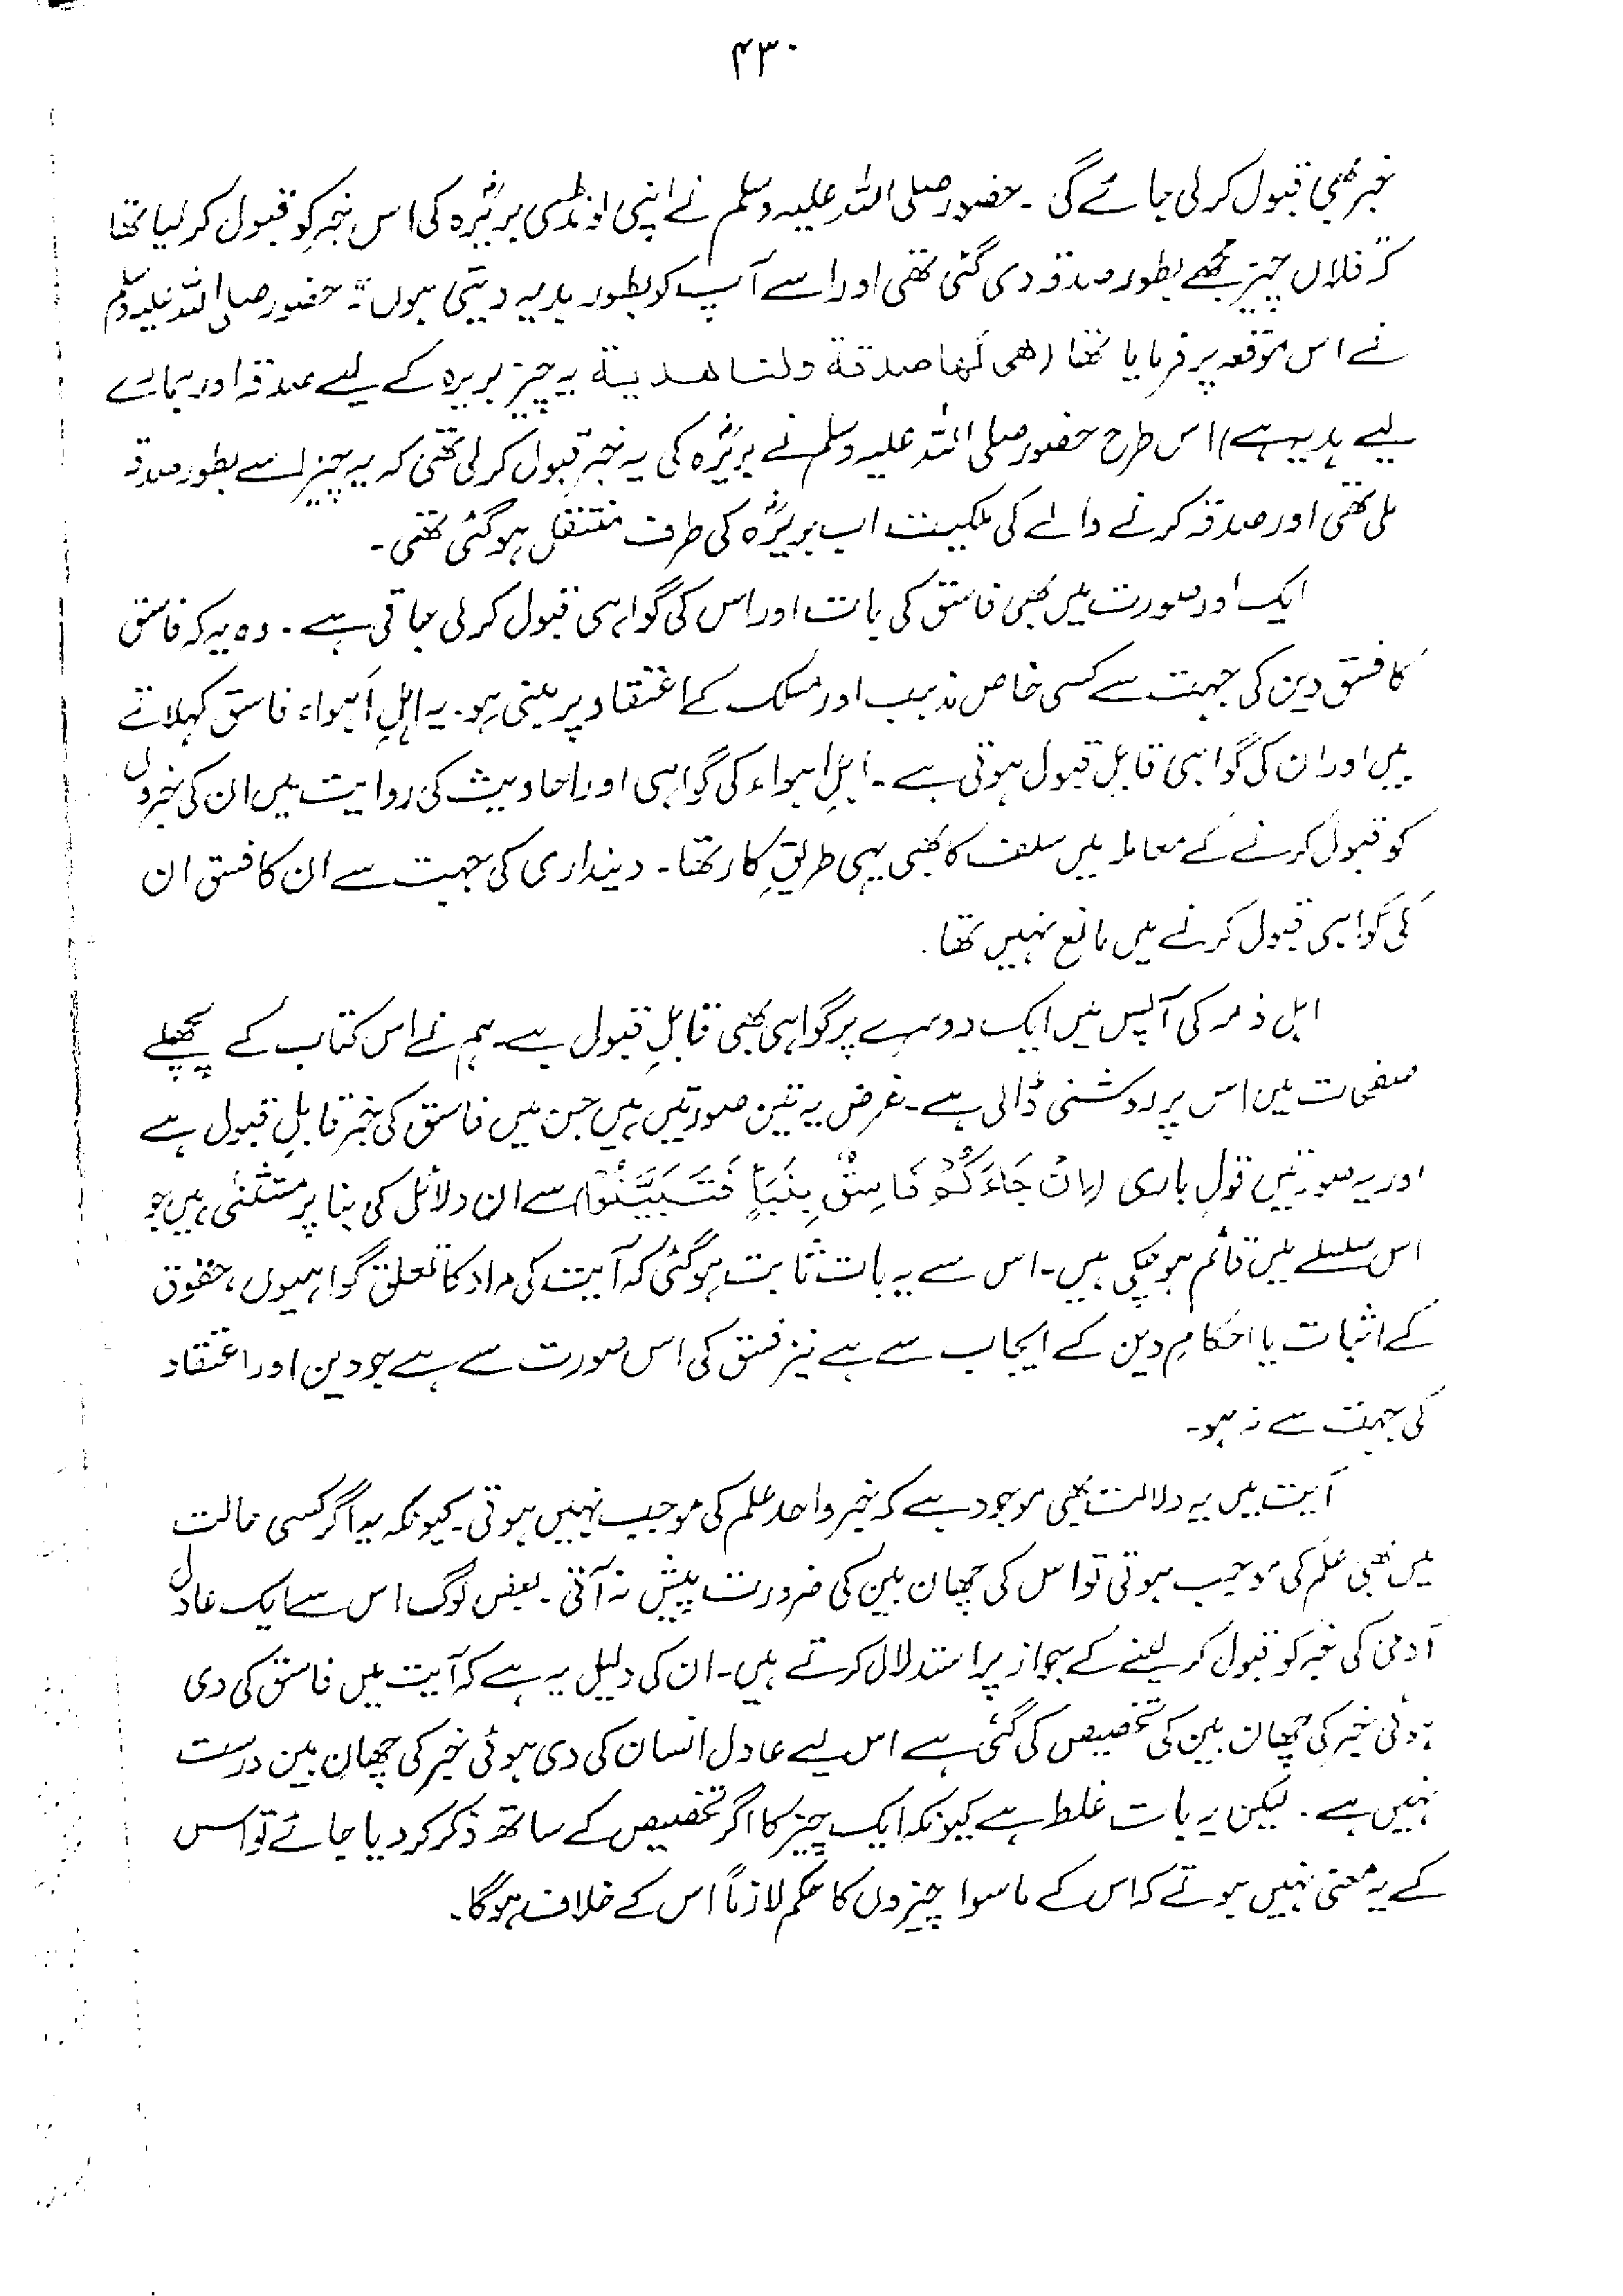 ۴۳۰
خبر بھی قبول کرلی جائے گی ۔ حضور صلی اللہ علیہ وسلم نے اپنی لونڈی بریرؓہ کی اس خبر کو قبول کرلیا تھا
کہ فلاں چیز مجھے بطور صدقہ دی گئی تھی اور اسے آپ کو بطور ہدیہ دیتی ہوں“۔ حضور صلی اللہ علیہ وسلم
نے اس موقعہ پر فرمایا تھا (ھی لھا صدقة ولنا ھدیة یہ چیز بریرہ کے لیے صدقہ اور ہمارے
لیے ہدیہ ہے) اس طرح حضور صلی اللہ علیہ وسلم نے بریرؓہ کی یہ خبر قبول کرلی تھی کہ یہ چیز اسے بطور صدقہ
ملی تھی اور صدقہ کرنے والے کی ملکیت اب بریرؓہ کی طرف منتقل ہوگئی تھی۔
ایک اور صورت میں بھی فاسق کی بات اور اس کی گواہی قبول کرلی جاتی ہے ۔ وہ یہ کہ فاسق
کا فسق دین کی جہت سے کسی خاص مذہب اور مسلک کے اعتقاد پر مبنی ہو۔ یہ اہلِ اَہواء فاسق کہلاتے
ہیں اور ان کی گواہی قابلِ قبول ہوتی ہے ۔ اہلِ اہواء کی گواہی اور احادیث کی روایت میں ان کی خبروں
کو قبول کرنے کے معاملہ میں سلف کا بھی یہی طریقِ کار تھا۔ دینداری کی جہت سے ان کا فسق ان
کی گواہی قبول کرنے میں مانع نہیں تھا۔
اہل ذمہ کی آپس میں ایک دوسرے پر گواہی بھی قابلِ قبول ہے۔ ہم نے اس کتاب کے پچھلے
صفحات میں اس پر روشنی ڈالی ہے ۔ غرض یہ تین صورتیں ہیں جن میں فاسق کی خبر قابلِ قبول ہے
اور یہ صورتیں قولِ باری (اِنْ جَاءَكُمْ فَاسِقٌ بِنَبَاٍ فَتَبَيَّنُوْا) سے ان دلائل کی بنا پر مستثنیٰ ہیں جو
اس سلسلے میں قائم ہوچکی ہیں ۔ اس سے یہ بات ثابت ہوگئی کہ آیت کی مراد کا تعلق گواہیوں ، حقوق
کے اثبات یا احکامِ دین کے ایجاب سے ہے نیز فسق کی اس صورت سے ہے جو دین اور اعتقاد
کی جہت سے نہ ہو۔
آیت میں یہ دلالت بھی موجود ہے کہ خبر واحد علم کی موجب نہیں ہوتی ۔ کیونکہ یہ اگر کسی حالت
میں بھی علم کی موجب ہوتی تو اس کی چھان بین کی ضرورت پیش نہ آتی ۔ بعض لوگ اس سے ایک عادل
آدمی کی خبر کو قبول کرلینے کے جواز پر استدلال کرتے ہیں ۔ ان کی دلیل یہ ہے کہ آیت میں فاسق کی دی
ہوئی خبر کی چھان بین کی تخصیص کی گئی ہے اس لیے عادل انسان کی دی ہوئی خبر کی چھان بین درست
نہیں ہے ۔ لیکن یہ بات غلط ہے کیونکہ ایک چیز کا اگر تخصیص کے ساتھ ذکر کردیا جائے تو اس
کے یہ معنی نہیں ہوتے کہ اس کے ماسوا چیزوں کا حکم لازماً اس کے خلاف ہوگا۔